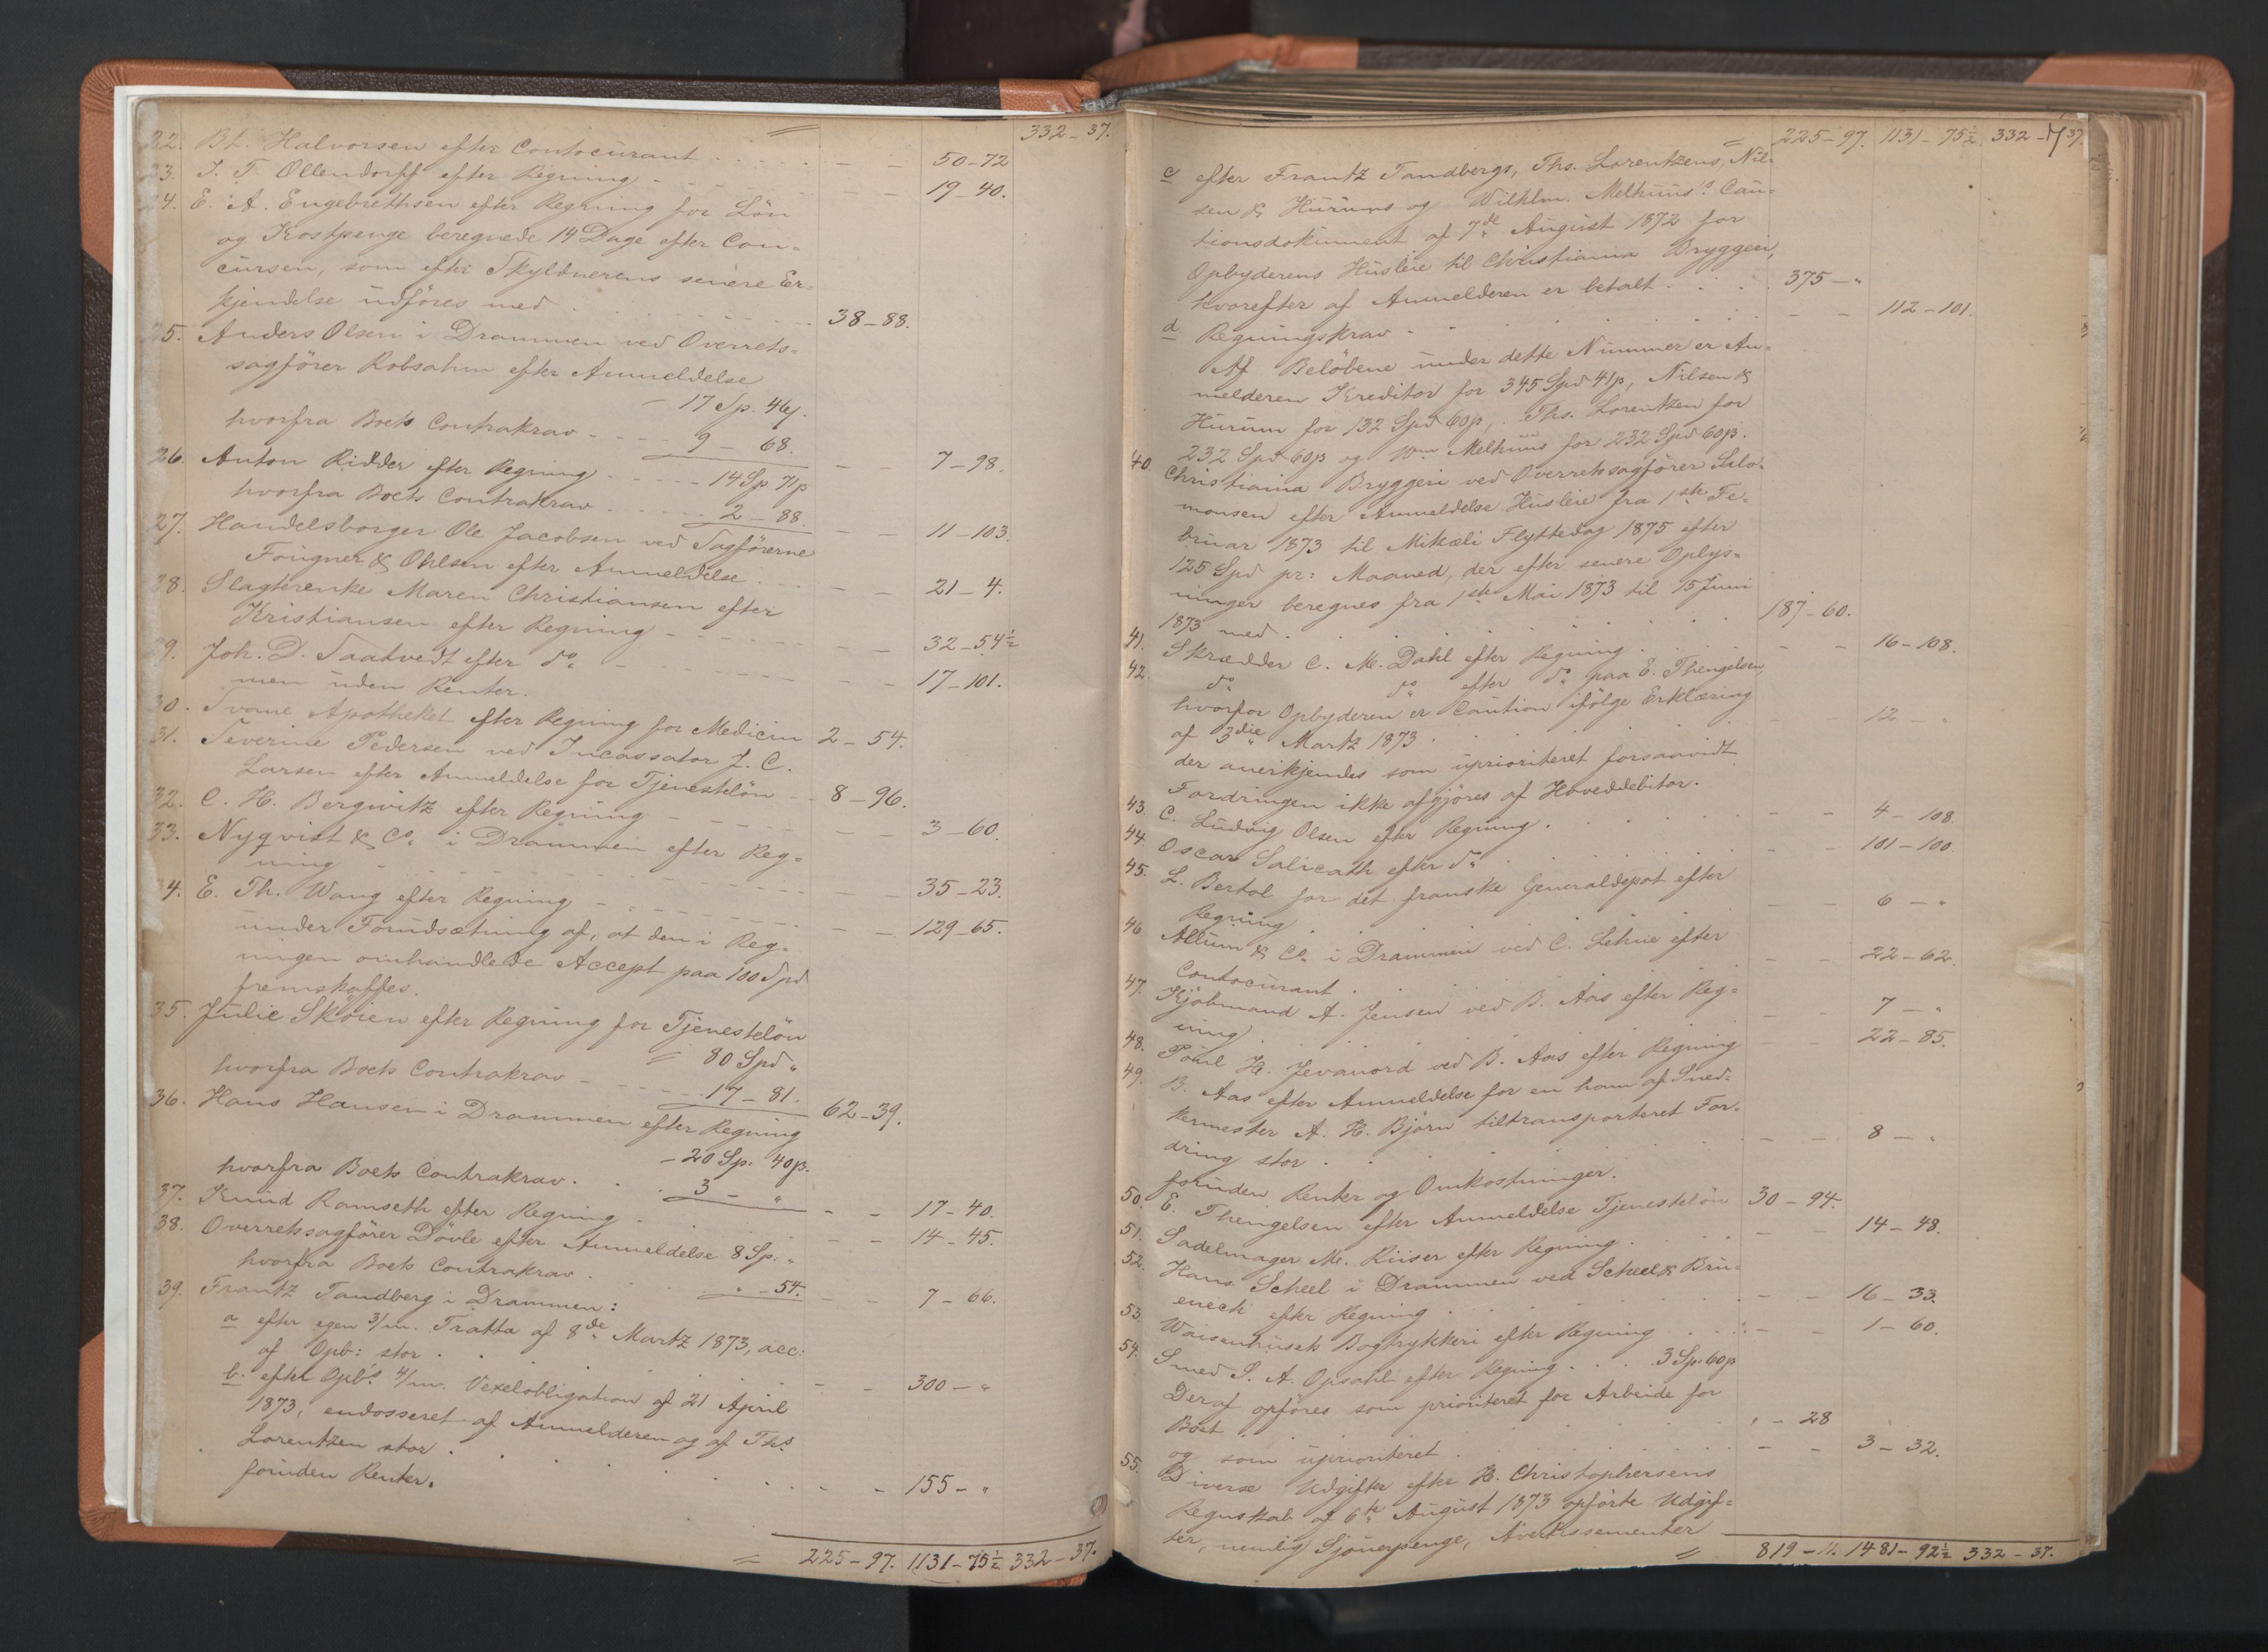 332 – 37.
22. Bt. Halvorsen efter Contocurant . . . . . – – 50 – 72
23. I. F. Ollendorff efter Regning – – – 19 – 40.
24. E. A. Engebrethsen efter Regning for Løn
og Kostpenge beregnede 14 Dage efter Con=
cursen, som efter Skyldnerens senere Er=
kjendelse udføres med . . . . . 38 – 88.
25. Anders Olsen i Drammen ved Overrets=
sagfører Robsahm efter Anmeldelse
– 17 Sp. 46β.
hvorfra Boets Contrakrav – – – 9 – 68. – – 7 – 98.
26. Anton Ridder efter Regning . . . . . 14 Sp 71β
hvorfra Boets Contrakrav . . . . . 2 – 88. – – 11 – 103.
27. Handelsborger Ole Jacobsen ved Sagførerne
Fougner & Ohlsen efter Anmeldelse . . – – 21 – 4.
28. Slagterenke Maren Christiansen efter
Kristiansen efter Regning – – – – – 32 – 54½
29. Joh. D. Saatvedt efter do – – – – – 17 – 101.
men uden Renter.
30. Svane Apotheket efter Regning for Medicin 2 – 54.
31. Severine Pedersen ved Incassator J. C.
Larsen efter Anmeldelse for Tjenesteløn – 8 – 96.
32. C. H. Bergwitz efter Regning – – – – 3 – 60.
33. Nyqvist & Co. i Drammen efter Reg=
ning – – – – – 35 – 23.
34. E. Th. Wang efter Regning – – – – 129 – 65.
under Forudsætning af, at den i Reg=
ningen omhandlede Accept paa 100 Spd
fremskaffes.
35. Julie Skoien efter Regning for Tjenesteløn
= 80 Spd "
hvorfra Boets Contrakrav – – – – 17 – 81. 62 – 39.
36. Hans Hansen i Drammen efter Regning
– 20 Sp. 40β.
hvorfra Boets Contrakrav . . . 3 – " – – 17 – 40.
37. Knud Ramseth efter Regning . . . . – – 14 – 45.
38. Overretssagfører Døvle efter Anmeldelse 8 Sp. "
hvorfra Boets Contrakrav . . . " – 54. – – 7 – 66.
39. Frantz Tandberg i Drammen:
a efter egen 3/m. Tratta af 8de Martz 1873, acc:
af Opb: stor . . . . . – – 300 – "
b. efter Opb's 4/m. Vexelobligation af 21 April
1873, endosseret af Anmelderen og af Ths
Lorentzen stor . . . . . – – 155 – "
foruden Renter.
= 225 – 97. 1131 – 75½ 332 – 37.
= 225 – 97. 1131 – 75½. 332 – 37.
c efter Frantz Tandbergs, Ths. Lorentzens, Nil=
sen & Hurums og Wilhlm. Melhuus's Cau=
tionsdokument af 7de August 1872 for
Opbyderens Husleie til Christiania Bryggeri,
hvorefter af Anmelderen er betalt . . . 375 – "
d. Regningskrav . . . . . – – 112 – 101.
Af Beløbene under dette Nummer er An=
melderen Kreditor for 345 Spd 41β, Nilsen &
Hurum for 132 Spd 60β, Ths. Lorentzen for
232 Spd 60β og Wm Melhuus for 232 Spd 60β.
40. Christiania Bryggeri ved Overretssagfører Salo=
monsen efter Anmeldelse Husleie fra 1ste Fe=
bruar 1873 til Mikæli Flyttedag 1875 efter
125 Spd pr: Maaned, der efter senere Oplys=
ninger beregnes fra 1ste Mai 1873 til 15 Juni
1873 med . . . . . 187 – 60.
41. Skrædder C. M. Dahl efter Regning . . . – – 16 – 108.
42. do do efter do paa E. Thengelsen,
hvorfor Opbyderen er Caution ifølge Erklæring
af 3die Martz 1873 . . . . – – 12 – "
der anerkjendes som uprioriteret forsaavidt
Fordringen ikke afgjøres af Hoveddebitor.
43. C. Ludvig Olsen efter Regning . . . . – – 4 – 108.
44. Oscar Salicath efter do . . . . – – 101 – 100.
45. L. Bertol for det franske Generaldepot efter
Regning . . . . – – 6 – "
46 Allum & Co. i Drammen ved C. Lehne efter
Contocurant . . . . – – 22 – 62.
47. Kjøbmand A. Jensen ved B. Aas efter Reg=
ning . . . . – – 7 – "
48. Poul H. Jevanord ved B. Aas efter Regning – – 22 – 85.
49. B. Aas efter Anmeldelse for en ham af Sned=
kermester A. H. Bjørn tiltransporteret For=
dring stor . . . . – – 8 – "
foruden Renter og Omkostninger.
50. E. Thengelsen efter Anmeldelse Tjenesteløn 30 – 94.
51. Sadelmager M. Riiser efter Regning . . . – – 14 – 48.
52. Hans Scheel i Drammen ved Scheel & Brü=
eneck efter Regning . . . . – – 16 – 33.
53. Waisenhusets Bogtrykkeri efter Regning . . . – – 1 – 60.
54. Smed S. A. Opsahl efter Regning . . . 3 Sp. 60β
Deraf opføres som prioriteret for Arbeide for
Boet . . . . " – 28
og som uprioriteret . . . . – – 3 – 32.
55. Diverse Udgifter efter H. Christophersens
Regnskab af 6te August 1873 opførte Udgif=
ter, nemlig Sjouerpenge, Avertissementer
= 819 – 11. 1481 – 92½ 332 – 37.